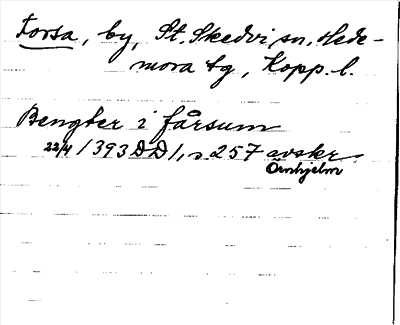 Forsa, by, St. Skedvi sn, Hede-
mora tg, Kopp. l.
Bengter i fårsum
22/4 1393 DD 1, s 257 avskr
Örnhjelm